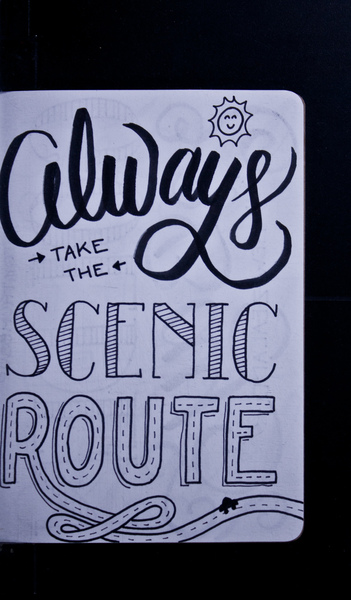 always
TAKE
THE
SCENIC
ROUTE